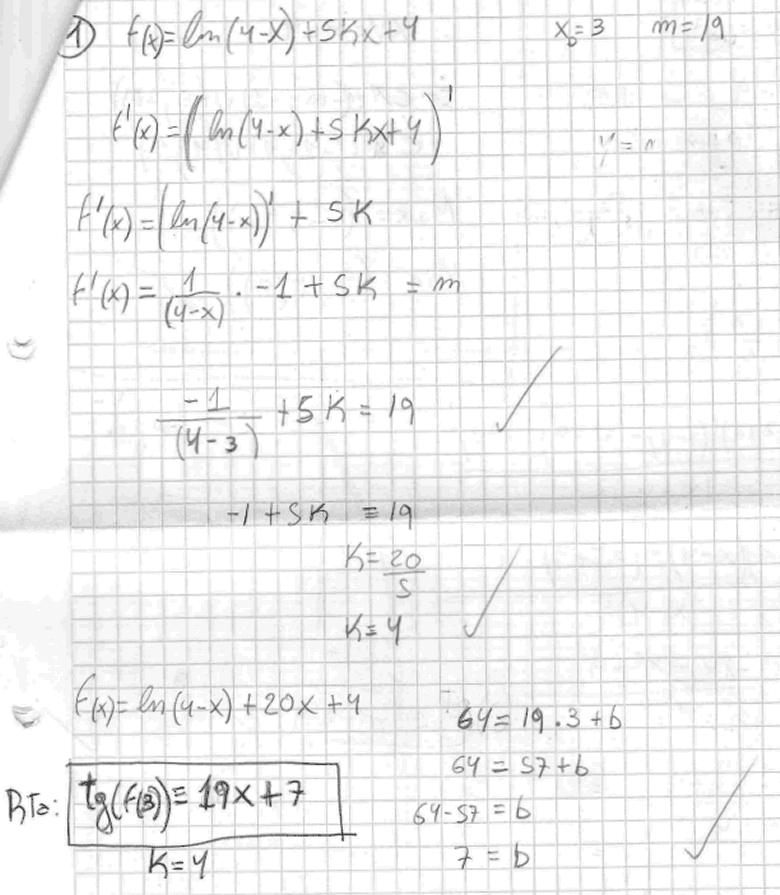 1) f(x) = ln(4-x) + 5kx + 4   x₀ = 3   m = 19
f'(x) = (ln(4-x) + 5kx + 4)'
y =
f'(x) = (ln(4-x))' + 5k
f'(x) = 1/(4-x) · -1 + 5k = m
-1/(4-3) + 5k = 19
-1 + 5k = 19
k = 20/5
k = 4
f(x) = ln(4-x) + 20x + 4
64 = 19.3 + b
64 = 57 + b
64-57 = b
7 = b
RTa: tg(f(3)) = 19x + 7
k = 4